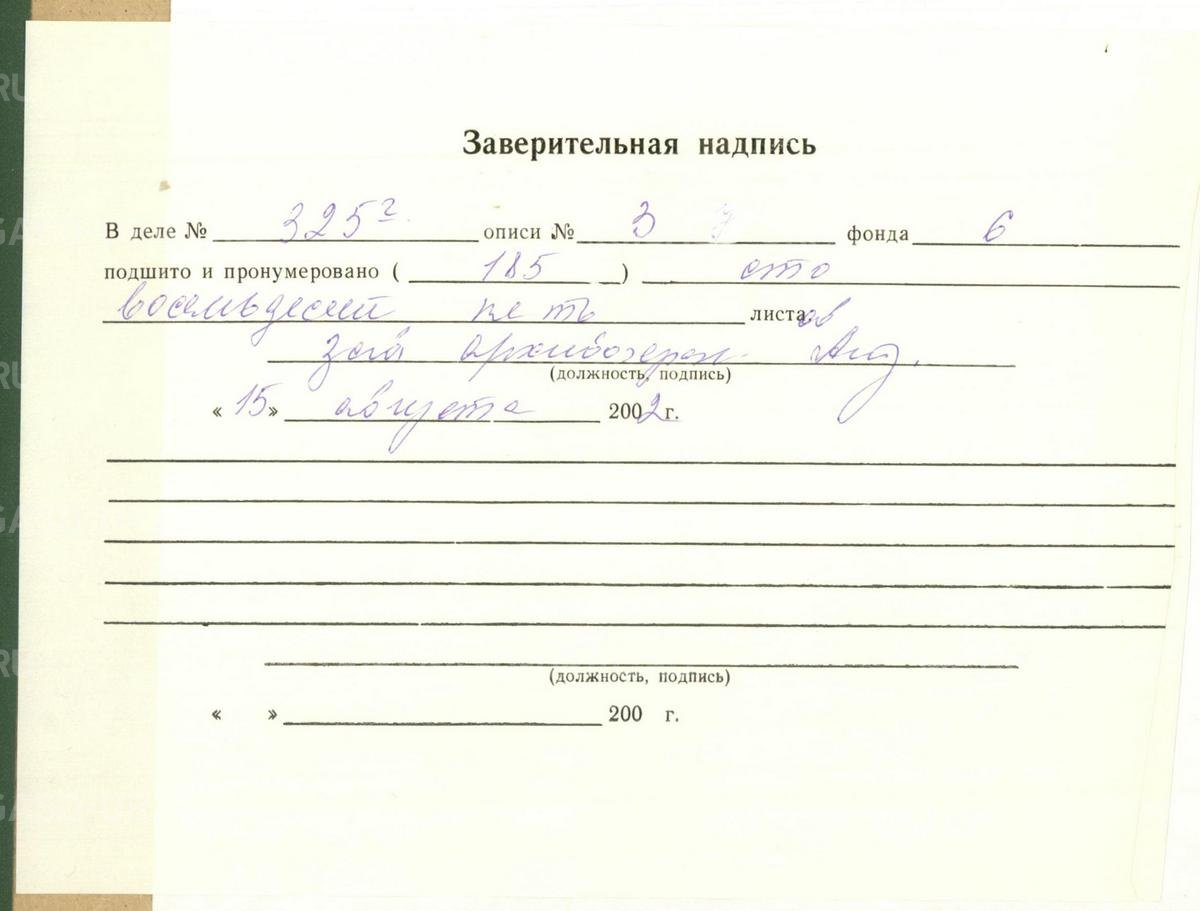 Заверительная надпись
В деле № 325г. описи № 3 фонда 6
подшито и пронумеровано ( 185 ) сто
восемьдесят пять листаов
зав архивохран.
(должность, подпись)
« 15 » августа 2002 г.
(должность, подпись)
« » 200 г.